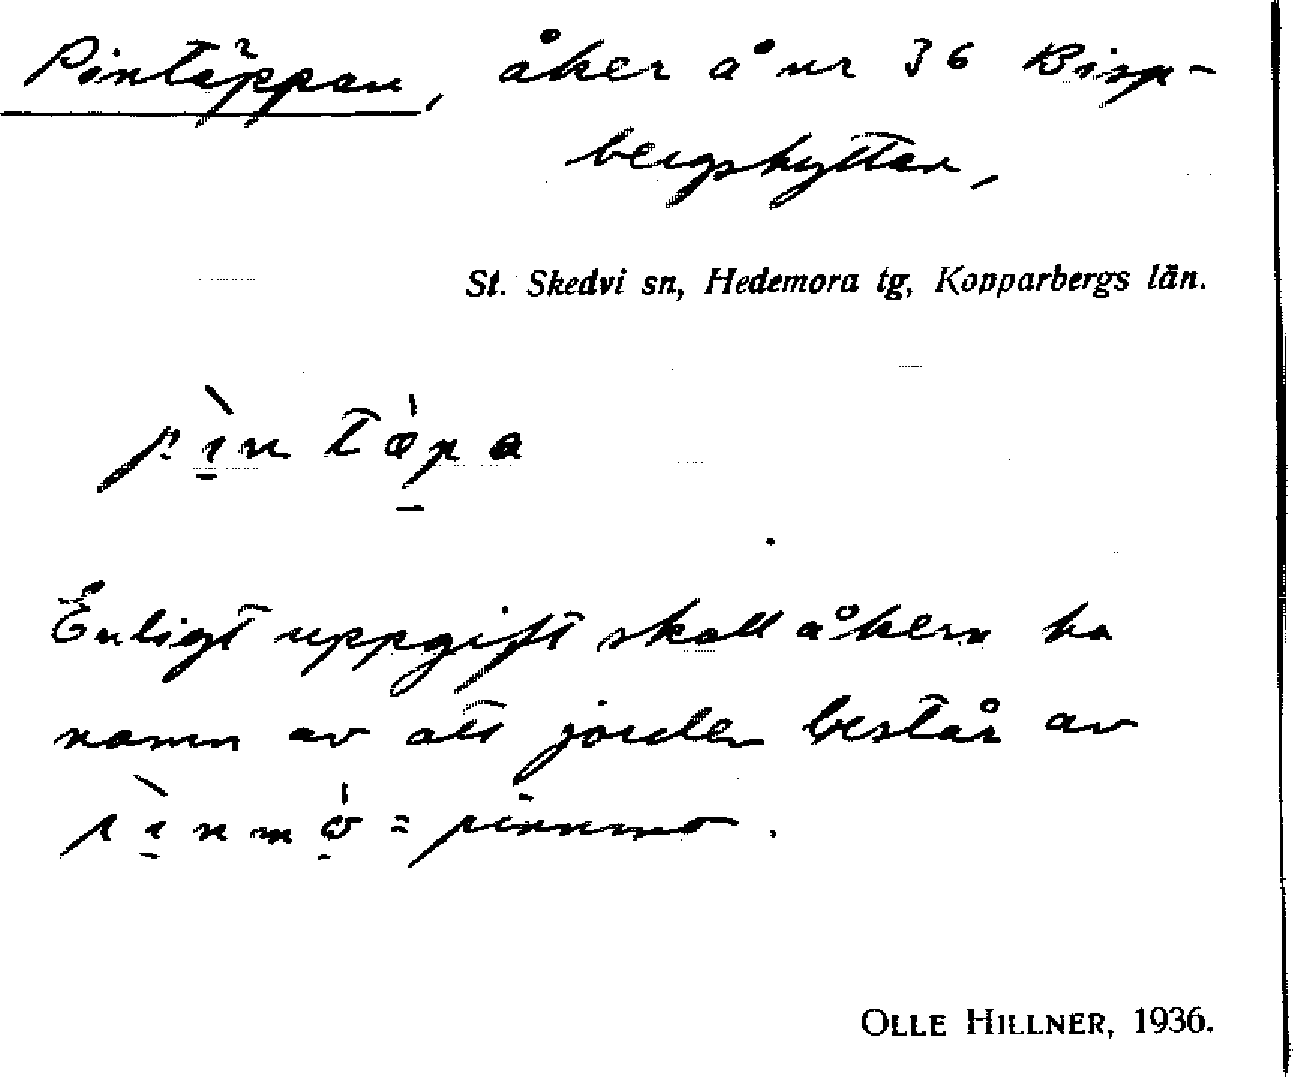 Pintäppan, åker å nr 36 Bisp-
bergshyttan,
St. Skedvi sn, Hedemora tg, Kopparbergs län.
Enligt uppgift skall åkern ha
namn av att jorden består av
= pinnmo.
OLLE HILLNER, 1936.